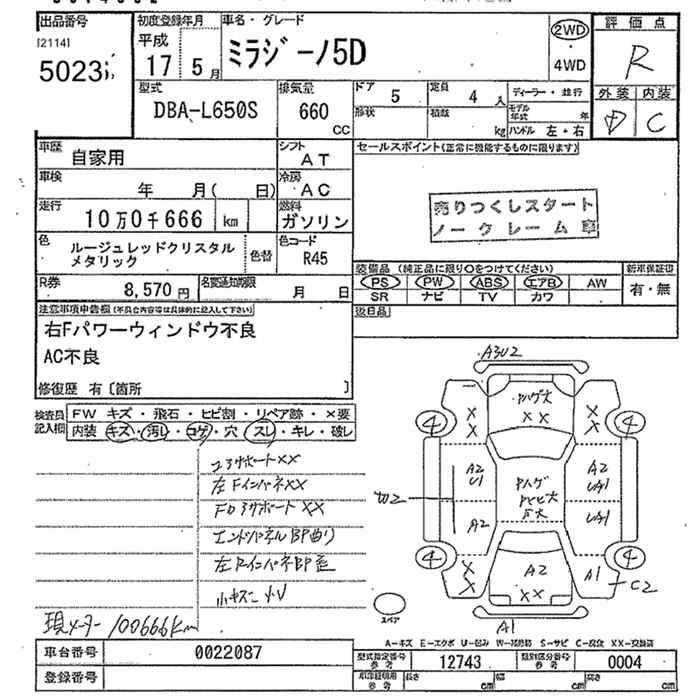 出品番号
[2114]
5023
初度登録年月
平成
17 5月
車名・グレード
ミラジーノ5D
2WD
・
4WD
評価点
R
外装 内装
D C
型式
DBA-L650S
排気量
660
CC
ドア
5
定員
4 人
形状
積載
kg
ディーラー・並行
モデル年式 年
ハンドル 左・右
車歴
自家用
シフト
AT
車検
年 月( 日)
冷房
AC
走行
10万0千666 km
燃料
ガソリン
色
ルージュレッドクリスタル
メタリック
色替
色コード
R45
R券
8,570 円
名変通知期限
月 日
セールスポイント(正常に機能するものに限ります)
売りつくしスタート
ノークレーム車
装備品 (純正品に限り○をつけてください)
新車保証書
PS PW ABS エアB AW
SR ナビ TV カワ
有・無
後日品
注意事項申告欄(不具合内容等は具体的に記入して下さい)
右Fパワーウィンドウ不良
AC不良
修復歴 有〔箇所 〕
検査員
記入欄
FW キズ・飛石・ヒビ割・リペア跡・×要
内装 キズ・汚レ・コゲ・穴・スレ・キレ・破レ
コアサポートXX
左FインパネXX
FDコアサポートXX
エンドパネルBP曲り
左RインパネBP歪
小キズ 小U
現メーター 100666km
A3U2
Pハゲ大
XX
X
X
X
X
4
4
A2
U1
A2
Pハゲ
A2
UA1
UA1
4
4
X
X
A2
XX
A1
C2
A1
スペア
A-キズ E-エクボ U-凹み W-補修跡 S-サビ C-腐食 XX-交換済
車台番号
0022087
登録番号
型式指定番号
参考
12743
類別区分番号
参考
0004
車庫証明用
参考
長さ
cm
幅
cm
高さ
cm